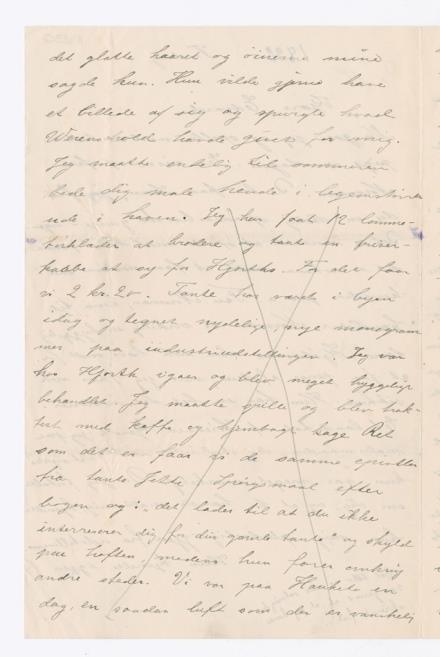 det glatte haaret og öinene mine
sagde hun. Hun vilde gjerne have
et billede af sig og spurgte hvad
Werenskiold havde givet for mig.
Jeg maatte endelig til sommeren
bede dig male hende i legemstörrelse
ude i haven. Jeg har faat 12 lomme-
törklæder at brodere og tante en friser-
kaabe at sy for Hjorths. For det faar
vi 2 kr. 20. Tante har været i byen
idag og tegnet nydelige, nye monogram
mer paa industriudstillingen. Jeg var
hos Hjorth igaar og blev meget hyggelig
behandlet. Jeg maatte spille og blev trak-
tert med kaffe og hjembagt kage. Ret
som det er faar vi de samme
fra tante Spörgsmaal efter
bogen og: "det lader til at du ikke
interreserer dig for din gamle tante" og skyld
paa hoften, medens hun farer omkring
andre steder. Vi var paa Haukeli en
dag, en saadan luft som der er vanskelig